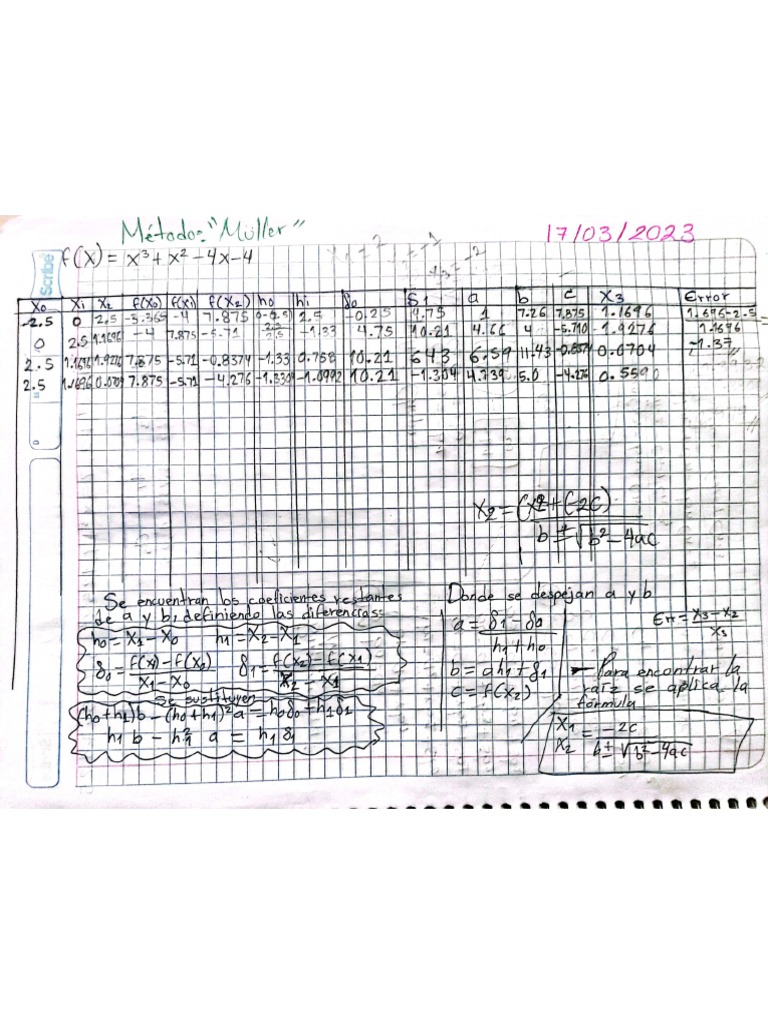 Método: "Müller"
17/03/2023
Scribe
f(x) = x³ + x² - 4x - 4
x₁ = 2
= -1
x₃ = -2
X₀ X₁ X₂ f(X₀) f(X₁) f(X₂) h₀ h₁ δ₀ δ₁ a b c X₃ Error
-2.5 0 2.5 -3.365 -4 7.875 0-(-2.5) 2.5 -0.25 4.75 1 7.26 7.875 1.1696 1.696-2.5
0 2.5 1.1696 -4 7.875 -5.71 -1.33 4.75 10.21 4.66 4 -5.710 1.9276 1.1696
-1.37
2.5 1.1696 1.9276 7.875 -5.71 -0.8374 -1.33 0.758 10.21 6.43 6.59 11.43 -0.8374 0.0704
2.5 1.1696 7.875 -5.71 -4.276 -1.330 -1.0992 10.21 -1.304 4.739 5.0 -4.276 0.5590
X₂ = (X2 + (-2c)) / b ± √b² - 4ac
Se encuentran los coeficientes restantes
de a y b, definiendo las diferencias:
h₀ = X₁ - X₀ h₁ = X₂ - X₁
δ₀ = f(x) - f(X₂) / X₁ - X₀ δ₁ = f(X₂) - f(X₁) / X₂ - X₁
Se sustituyen
(h₀+h₁)b - (h₀+h₁)²a = h₀δ₀ + h₁δ₁
h₁b - h₁² a = h₁δ₁
Donde se despejan a y b
a = δ₁ - δ₀ / h₁ + h₀
b = ah₁ + δ₁
c = f(X₂)
Err = X₃ - X₂ / X₃
- Para encontrar la
raíz se aplica la
fórmula
X₁
X₂ = -2c / b ± √b² - 4ac